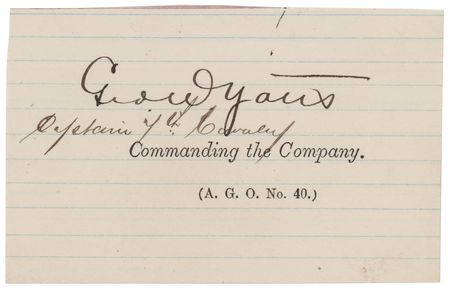 Geo W Yates
Captain 7th Cavalry
Commanding the Company.
(A. G. O. No. 40.)